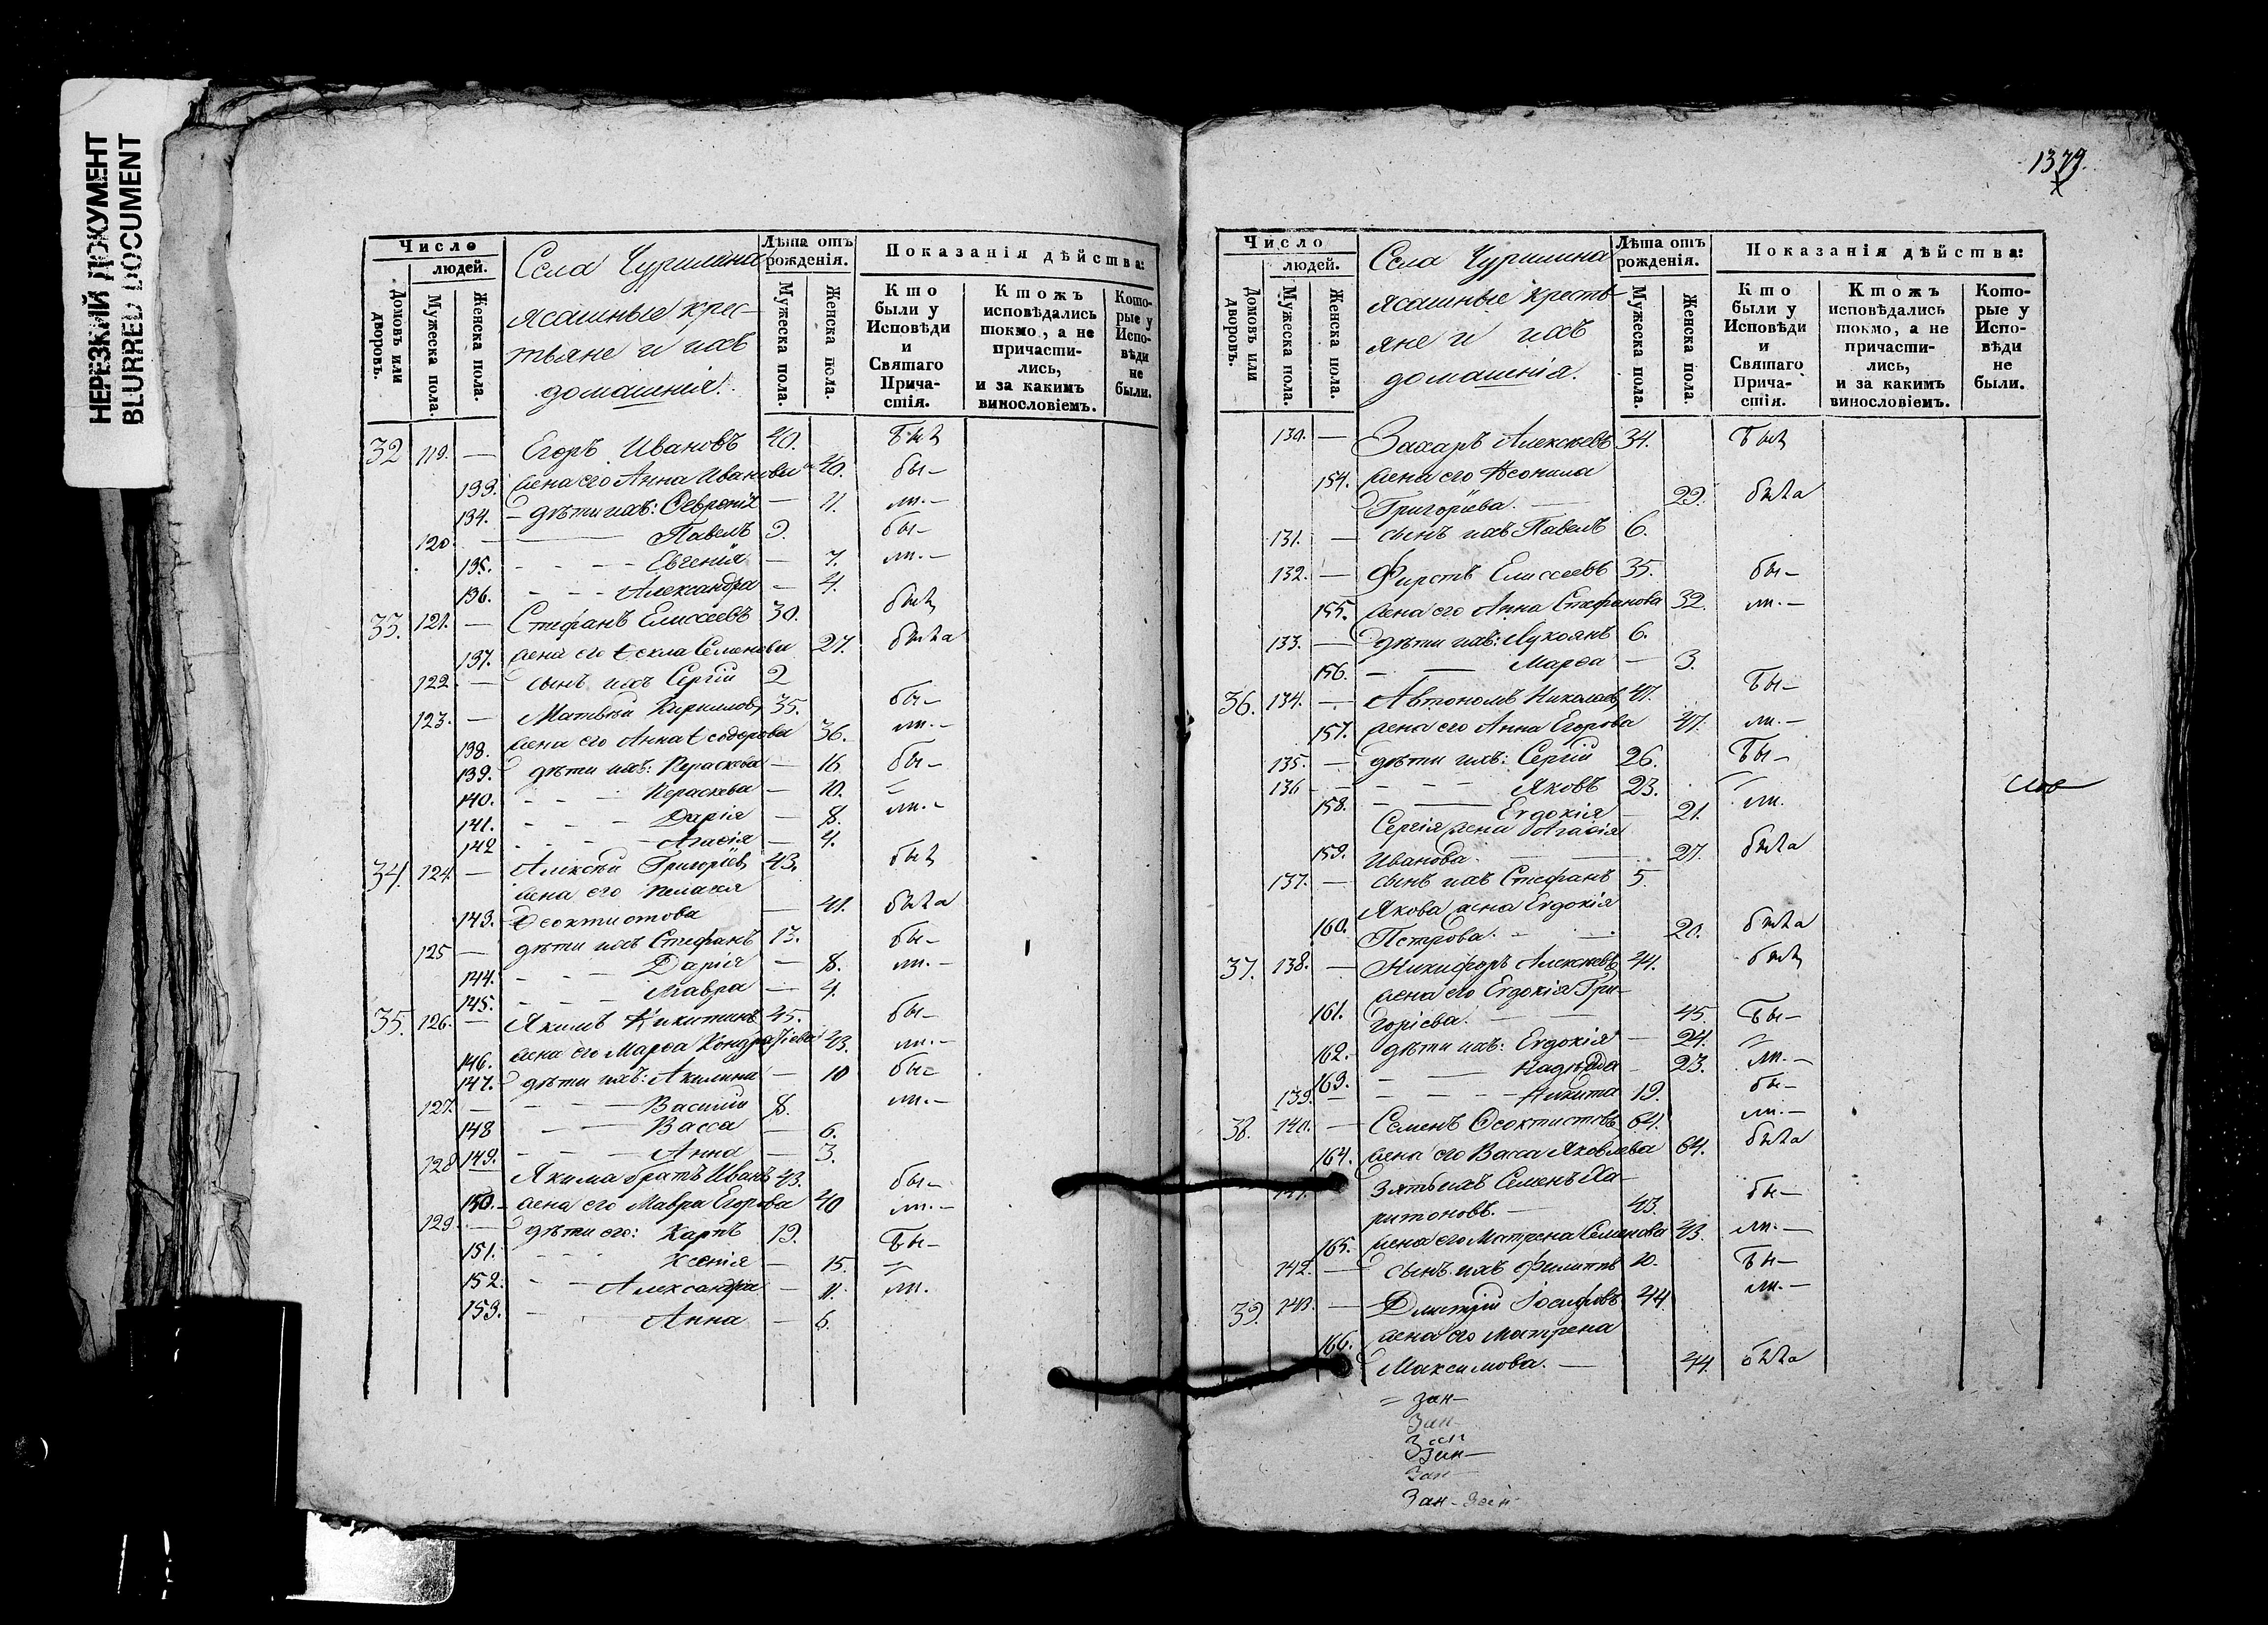 НЕРЕЗКИЙ ДОКУМЕНТ
BLURRED DOCUMENT
Число
людей.
Домовъ или дворовъ.
Мужеска пола.
Женска пола.
Села Чурилина
ясашные крес-
тьяне и ихъ
домашнія.
Лѣта отъ рожденія.
Мужеска пола.
Женска пола.
Показанія дѣйства:
Кто были у Исповѣди и Святаго Прича-стія.
Ктожъ исповѣдались токмо, а не причасти-лись, и за какимъ винословіемъ.
Кото-рые у Испо-вѣди не были.
32 119. — Егоръ Ивановъ 40. былъ
133. жена его Анна Иванова 40. бы—
134. — дѣти ихъ: Февронія — 11. ли.—
120 — Павелъ 9. бы—
135. - - - Евгенія — 7. ли.—
136. - - - Александра — 4.
33. 121. — Стефанъ Елисеевъ 30. былъ
137. жена его Ѳекла Семенова 27. была
122. — сынъ ихъ Сергій 2
123. — Матвей Кириловъ 35. бы—
138. жена его Анна Ѳеодорова 36. ли.—
139. дѣти ихъ: Параскева — 16 бы—
140. - - Параскева — 10. —
141. - - - Дарія — 8. ли.-
142 - - - Агафія — 4.
34. 124. — Алексѣй Григоріевъ 43. былъ
жена его Пелагея
143. Ѳеоктистова — 41. была
125 — дѣти ихъ Стефанъ 13. бы—
144. - - - Дарія — 8. ли.—
145. - - - Мавра — 4.
35. 126. — Якимъ Никитинъ 45. бы—
146. жена его Марѳа Кондратіева 43. ли.—
147. дѣти ихъ: Акилина — 10 бы—
127. — - - Василій 8. ли.—
148 - — Васса — 6.
149. - - - Анна — 3.
128 — Якима братъ Иванъ 43. бы—
150. жена его Мавра Егорова 40 ли.—
129. — дѣти его: Карпъ 19. Бы—
151. - - Ксенія — 15. —
152. - - Александра — 11. ли.
153. - Анна — 6.
1379.
Число
людей.
Домовъ или дворовъ.
Мужеска пола.
Женска пола.
Села Чурилина
ясашные кресть-
яне и ихъ
домашнія.
Лѣта отъ рожденія.
Мужеска пола.
Женска пола.
Показанія дѣйства:
Кто были у Исповѣди и Святаго Прича-стія.
Ктожъ исповѣдались токмо, а не причасти-лись, и за какимъ винословіемъ.
Кото-рые у Испо-вѣди не были.
130. — Захаръ Алексеевъ 34. Былъ
154. жена его Неонила
Григоріева. — 29. была
131. — сынъ ихъ Павелъ 6.
132. — Фирсъ Елисеевъ 35. бы—
155. жена его Анна Стефанова 32. ли.—
133. — дѣти ихъ: Лукоянъ 6.
156. - — Марѳа — 3.
36. 134. — Автономъ Николаевъ 47. Бы—
157. жена его Анна Егорова 47. ли.—
135. — дѣти ихъ: Сергій 26. Бы—
136 - - — Яковъ 23. —
158. - — Евдокія — 21. ли.
Сергія жена Агафія
159. Иванова. — 27. была
137. — сынъ ихъ Стефанъ 5.
Якова жена Евдокія
160. Петрова. - 20. была
37. 138. — Никифоръ Алексеевъ 44. былъ
жена его Евдокія Гри-
161. горіева. — 45. Бы—
162. дѣти ихъ: Евдокія — 24. —
163. - — Надежда - 23. ли.—
139. — - - - Никита 19. бы—
38. 140. — Семенъ Ѳеоктистовъ 64. ли.—
164. жена его Васса Яковлева 64. была
141. зять ихъ Семенъ Ха-
ритоновъ. — 43. бы—
165. жена его Матрена Семенова 43. ли.—
142. — сынъ ихъ Филиппъ 10. Бы—
39. 143. — Дмитрій Іосифовъ 44 ли.—
166. жена его Матрена
Максимова. — 44. была
= зан—
Зан—
Зан—
Зан—
Зан—